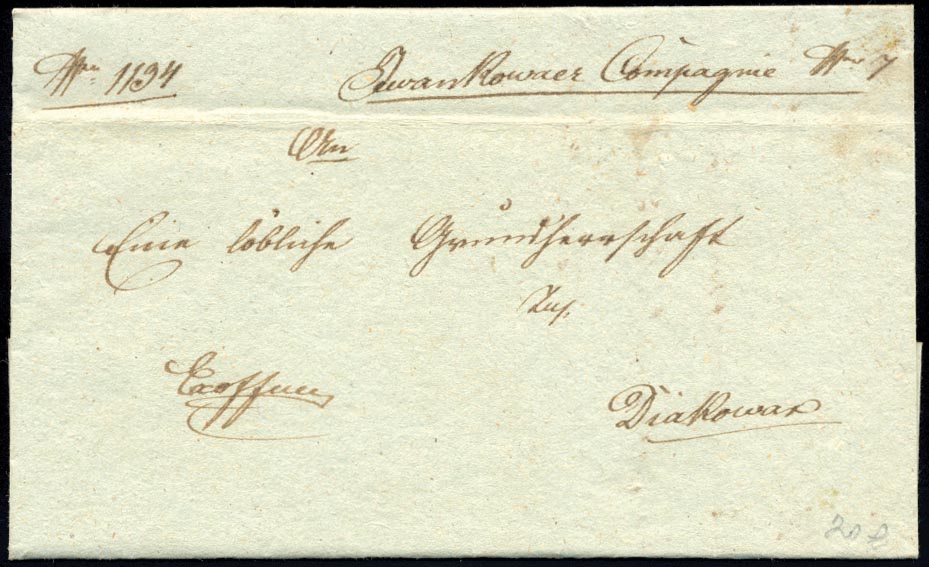 Nro 1134 Iwankowaer Compagnie Nro 7
An
Eine löbliche Grundherrschaft
zu
Ex offo
Diakowar
20